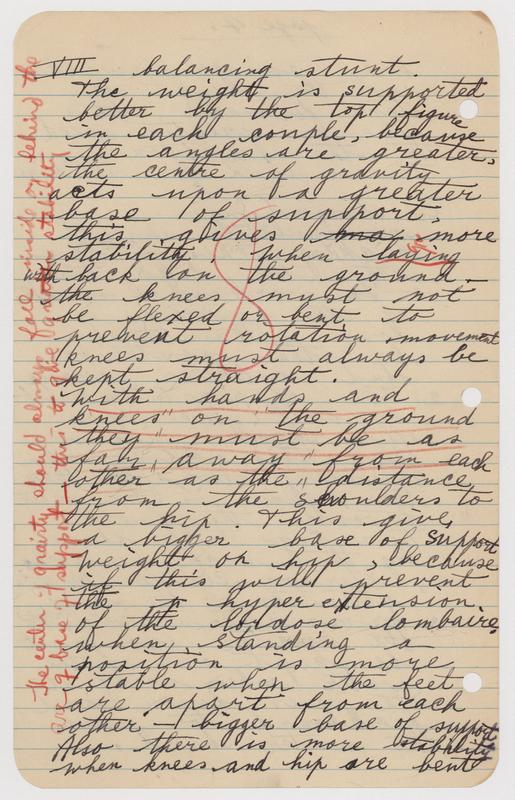 VIII balancing stunt.
The weight is supported
better by the top figure
in each couple, because
the angles are greater,
the centre of gravity
acts upon a greater
base of support,
this gives more
stability. When laying
with back on the ground.
the knees must not
be flexed or bent to
prevent rotation movement
knees must always be
kept straight.
With hands and
knees" on "the ground
they "must be as
far "away" from each
other as the "distance
from the shoulders to
the hip. This give,
a bigger base of support
weight on hip, because
it this will prevent
the hyper extension.
of the lordose lombaire.
when standing a
position is more
stable when the feet
are apart from each
other – bigger base of support
Also there is more stability
when knees and hip are bent
The center of gravity should always face inside or behind the
axe of base of support – this to give more stability
8